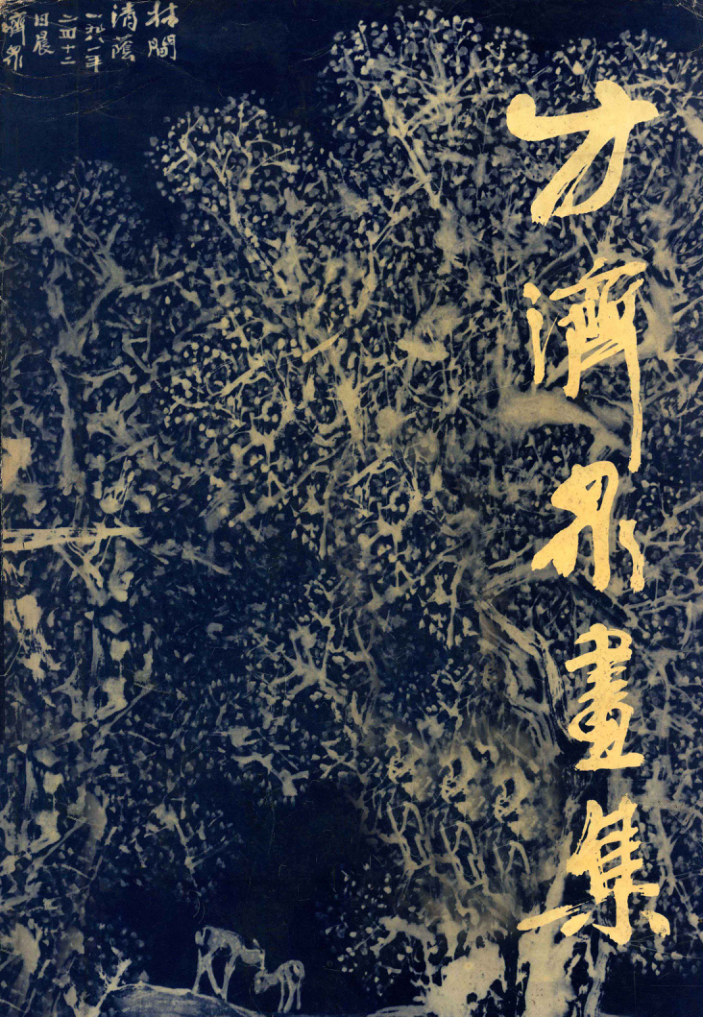 方濟衆畫集
林間
清蔭
一九八一年
二月十二
日晨
濟衆